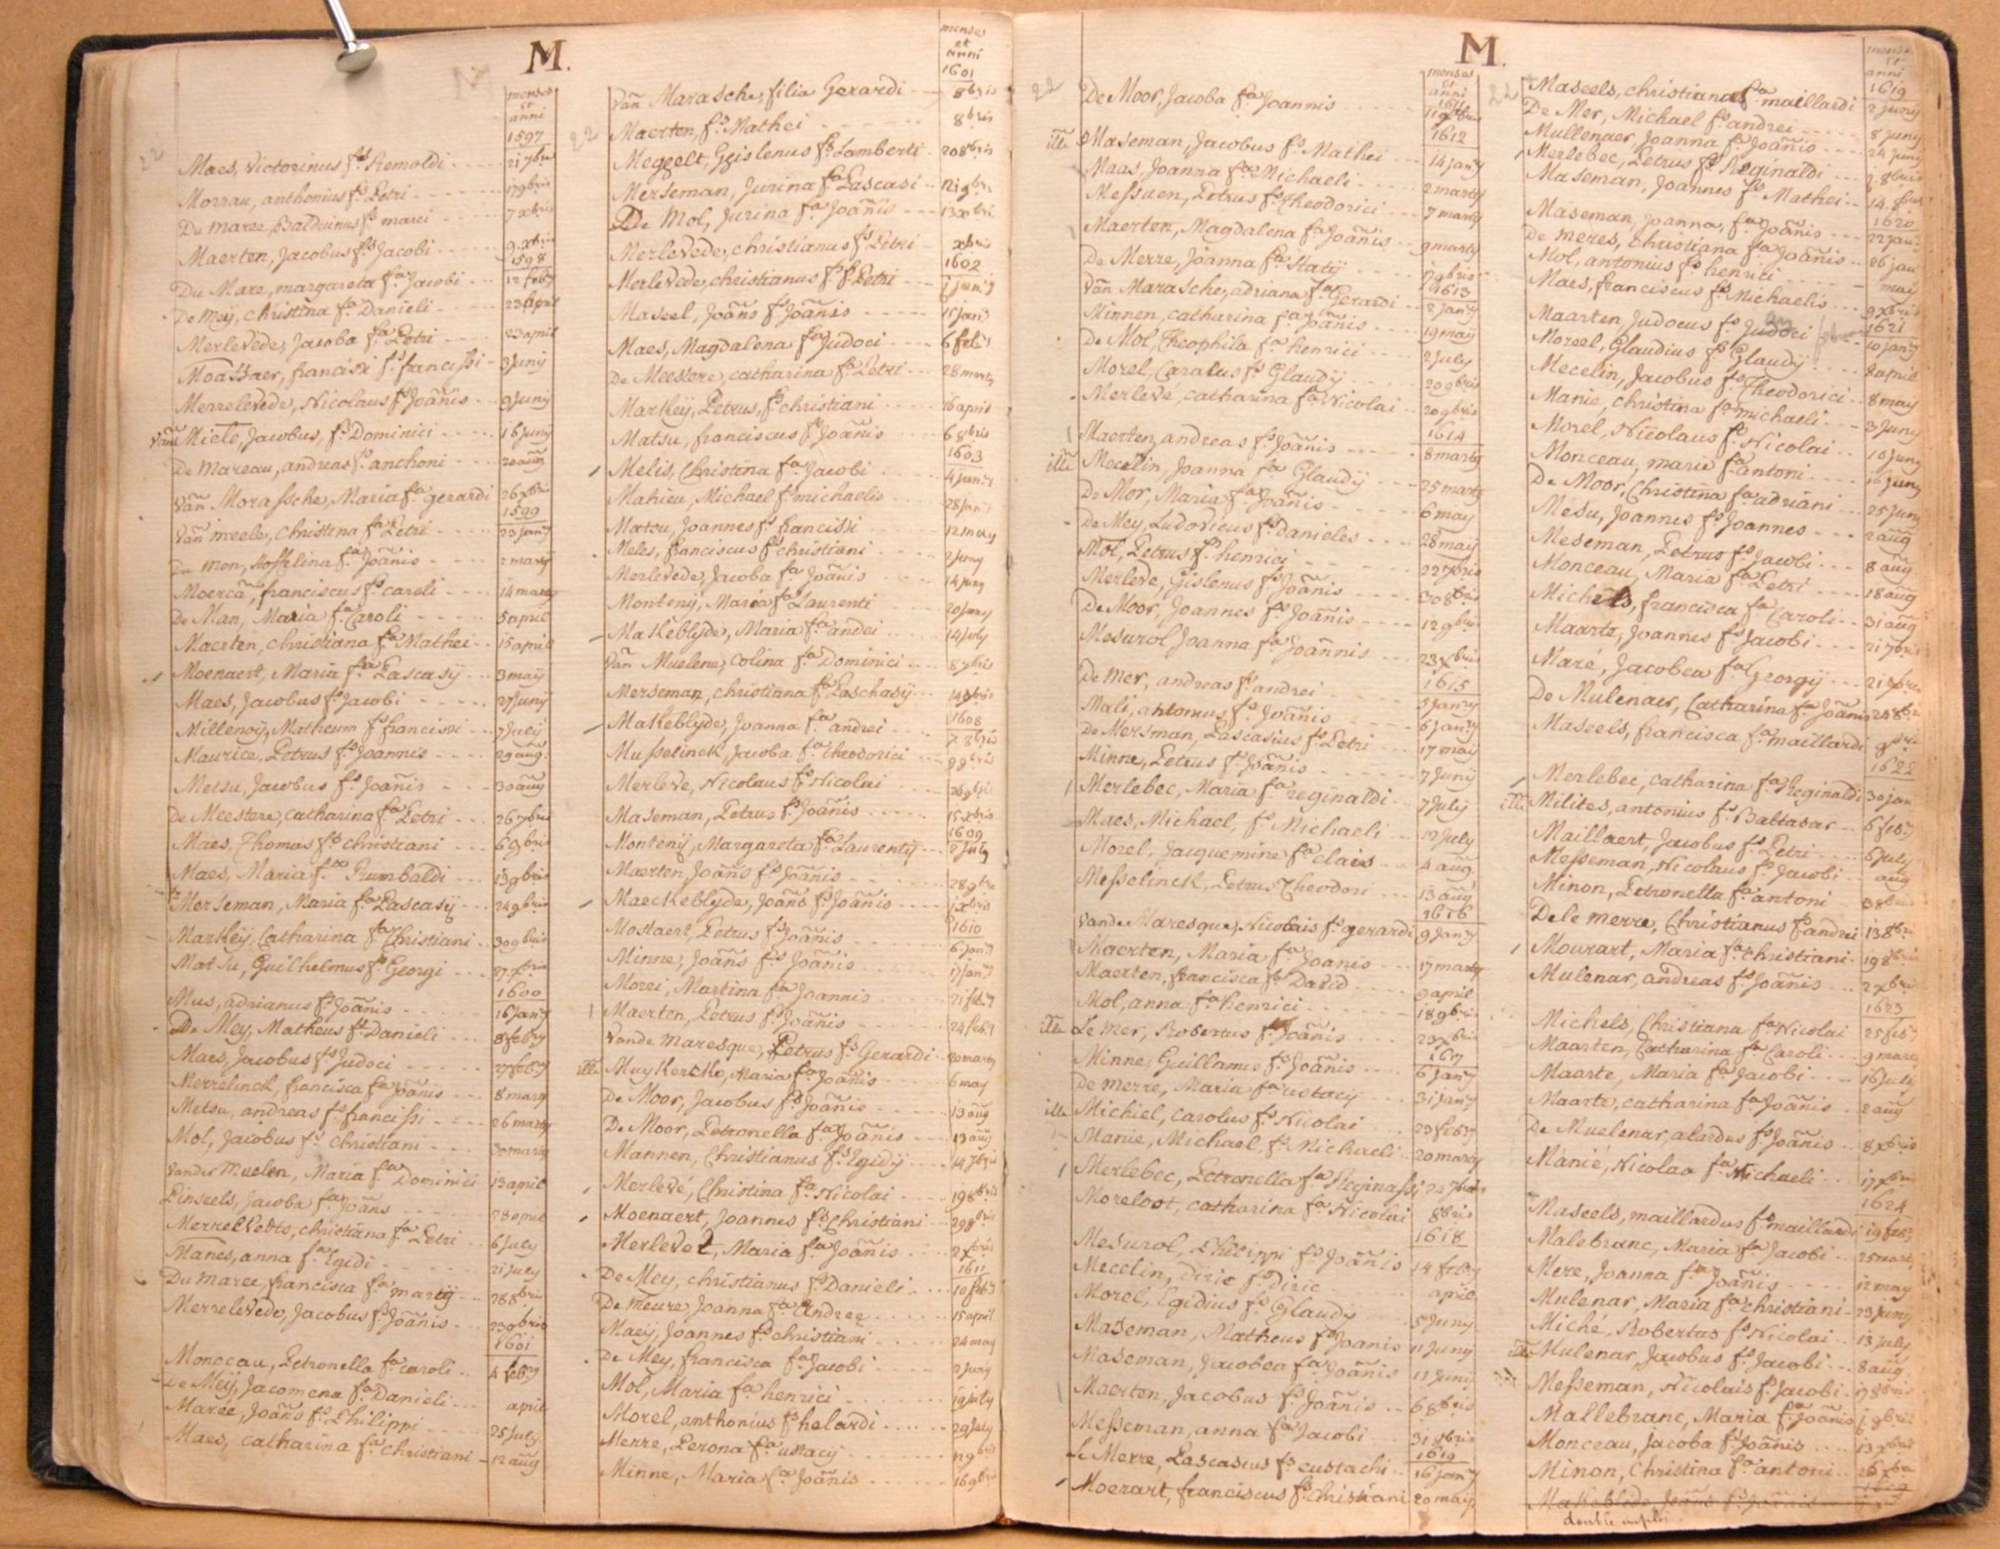 M.
menses
et
anni
1597
22
Maes, Victorinus fs Remoldi 21 7bris
Morrau, anthonius fs Petri 17 9bris
Du maree, Balduinus fs marci 7 xbris
Maerten, Jacobus fs Jacobi 9 xbris
1598
Du Mare, margareta fa Jacobi 12 feby
De Mey, christina fa Danieli 22 april
Merlevede, Jacoba fa Petri 23 april
francissi 3 Juny
Merrelevede, Nicolaus fs Joãnis 9 Juny
Van Miele, Jacobus, fs Dominici 16 Juny
De Mareau, andreas fs anthoni 20 aug
Van Morassche, Maria fa gerardi 26 xbris
1599
Van meele, Christina fa Petri 23 jany
De mon, fa Joãnis 2 marty
Moercã, franciscus fs caroli 14 marty
De Man, Maria fa Caroli 5 april
Maerten, christiana fa Mathei 15 april
Moenaert, Maria fa Pascasy 3 maÿ
Maes, Jacobus fs Jacobi 27 Juny
Millenoy, Matheum fs francissi 7 July
Maurice, Petrus fs Joannis 29 aug
Metsu, Jacobus fs Joãnis 30 aug
De Meestere, catharina fa Petri 26 7bris
Maes, Thomas fs christiani 6 9bris
Maes, Maria fa Rumbaldi 13 9bris
Merseman, Maria fa Pascasÿ 24 9bris
Markeÿ, Catharina fa Christiani 30 9bris
Matsu, Guilhelmus fs Georgi 27 xbris
1600
Mus, adrianus fs Joãnis 16 Jany
De Mey, Matheus fs Danieli 8 feby
Maes, Jacobus fs Judoci 27 feby
Merrelinck, francisca fa Joãnis 8 marty
Metsu, andreas fs francissi 26 marty
Mol, Jacobus fs Christiani 30 marty
Vander Muelen, Maria fa Dominici 13 april
Jacoba fa Joãns 28 april
Merrelvede, christiana fa Petri 6 July
Manes, anna fa Egidi 21 July
Du maree, francisca fa martÿ 28 8bris
Merrelevede, Jacobus fs Joãnis 23 9bris
1601
Monceau, Petronella fa caroli 4 feby
De Meÿ, Jacomena fa Danieli april
Maree, Joãns fs Philippi 25 July
Maes, catharina fa christiani 12 aug
menses
et
anni
1601
Van Marasche, filia Gerardi 8bris
22
Maerten, fs Mathei 8bris
Megeelt, Gislenus fs Lamberti 20 8bris
Merseman, Jurina fa Pascasi 12 9bris
De Mol, Jurina fa Joãnis 13 xbris
Merlevede, christianus fs Petri xbris
1602
Merlevede, christianus fs Petri 1 jany
Maseel, Joãns fs Joãnis 15 jany
Maes, Magdalena fa Judoci 6 febs
De Meestere, catharina fa Petri 28 marty
Markeÿ, Petrus, fs christiani 16 april
Matsu, franciscus fs Joãnis 6 8bris
1603
Melis, Christina fa Jacobi 4 jany
Mahieu, Michael fs michaelis 28 jany
Matsu, Joannes fs francissi 12 may
Meles, franciscus fs christiani 2 juny
Merlevede, Jacoba fa Joãnis 14 juny
Monteny, Maria fa Laurenti 20 juny
Makeblyde, Maria fa andrei 14 july
Van Muelene, Colina fa Dominici 8 7bris
Merseman, christiana fa Paschasÿ 14 9bris
1608
Makeblyde, Joanna fa andrei 7 8bris
Musselinck, Jacoba fa theodorici 9 8bris
Merleve, Nicolaus fs Nicolai 24 9bris
Maseman, Petrus fs Joãnis 15 xbris
1609
Monteny, Margareta fa Laurentÿ 2 July
Maerten, Joãns fs Joãnis 28 9bre
Maeckeblyde, Joãns fs Joãnis 1 xbris
1610
Mostaert, Petrus fs Joãnis 6 jany
Minne, Joãns fs Joãnis 17 jany
Morei, Martina fa Joannis 21 feby
Maerten, Petrus fs Joãnis 24 feby
Vande Maresque, Petrus fs Gerardi 20 marty
Muykercke, Maria fa Joãnis 6 may
De Moor, Jacobus fs Joãnis 13 aug
De Moor, Petronella fa Joãnis 13 aug
Mannen, Christianus fs Egidÿ 14 7bris
Merlevé, Christina fa Nicolai 19 8bris
Moenaert, Joannes fs Christiani 29 8bris
Merlevet, Maria fa Joãnis 2 xbris
1611
De Mey, christianus fs Danieli 10 feby
De meure, Joanna fa andree 15 april
Maeÿ, Joannes fs christiani 24 may
De Mey, francisca fa Jacobi 2 juny
Mol, Maria fa henrici 19 july
Morel, anthonius fs helardi 29 july
Merre, Perona fa ustacÿ 1 19bris
Minne, Maria fa Joãnis 16 9bris
M.
menses
et
anni
1611
22
De Moor, Jacoba fa Joannis 11 9bris
1612
Maseman, Jacobus fs Mathei 14 jany
Maas, Joanna fa Michaeli 2 marty
Messaen, Petrus fs Theodorici 7 marty
Maerten, Magdalena fa Joãnis 9 marty
De Merre, Joanna fa Statÿ 17 9bris
1613
Van Marasche, adriana fa Gerardi 2 jany
Minnen, catharina fa Joãnis 19 maÿ
De Mol, Theophila fa henrici 2 July
Morel, Carolus fs Glaudÿ 20 9bris
Merlevé, catharina fa Nicolai 20 9bris
1614
Maerten, andreas fs Joãnis 8 marty
Mecelin, Joanna fa Glaudÿ 25 marty
De Mor, Maria fa Joãnis 6 may
De Mey, Ludovicus fs Danieles 28 maÿ
Mol, Petrus fs henrici 22 7bris
Merleve, Gislenus fs Joãnis 30 8bris
De Moor, Joannes fs Joãnis 12 9bris
Mesurol Joanna fa Joãnnis 23 xbris
1615
De mer, andreas fs andrei 3 jany
Mali, antonius fs Joãnis 6 jany
De Mersman, Pascasius fs Petri 17 maÿ
Minne, Petrus fs Joãnis 7 Juny
Merlebec, Maria fa reginaldi 7 July
Maes, Michael, fs Michaeli 12 July
Morel, Jacquemine fa clais 4 aug
Messelinck, Petrus Theodori 13 aug
1616
Vande Maresque, Nicolais fs gerardi 9 Jany
Maerten, Maria fa Joanis 17 marty
Maerten, francisca fa David 9 april
Mol, anna fa henrici 18 9bris
Le Mer, Robertus fs Joãnis 23 xbris
1617
Minne, Guillamus fs Joãnis 6 jany
De merre, Maria fa ustacy 31 jany
Michiel, Carolus fs Nicolai 23 feby
Manie, Michael, fs Michaeli 20 marty
Merlebec, Petronella fa 24 7bris
Moreloot, catharina fa Nicolai 8bris
1618
Mesurol, Philippi fs Joãnis 14 feby
Mecelin, Diric fs Diric april
Morel, Egidius fs Glaudÿ 5 Juny
Maseman, Matheus fs Joanis 11 Juny
Maseman, Jacobea fa Joãnis 11 Juny
Maerten, Jacobus fs Joãnis 6 8bris
Messeman, anna fa Jacobi 31 xbris
1619
Le Merre, Pascasius fs eustachi 16 jany
Moerart, franciscus fs christiani 20 maÿ
menses
et
anni
1619
22
Maseels, christiana fa maillardi 2 juny
De Mer, Michael fs andrei 8 juny
Mullenaer, Joanna fa Joãnis 24 juny
Merlebec, Petrus fs Reginaldi 2 8bris
Maseman, Joannes fs Mathei 14 8bris
1620
Maseman, Joanna, fa Joãnis 22 jan
De meres, christiana fa Joãnis 26 jan
Mol, antonius fs henrici mai
Maes, franciscus fs Michaelis 9 xbris
1621
Maarten, Judocus fs Judoci 10 jany
Moreel, Glaudius fs Glaudÿ 8 april
Mecelin, Jacobus fs Theodorici 8 may
Manie, christina fa michaeli 3 Juny
Morel, Nicolaus fs Nicolai 10 Juny
Monceau, marie fa antoni 16 juny
De Moor, Christina fa adriani 25 juny
Mesu, Joannis fs Joannes 2 aug
Meseman, Petrus fs Jacobi 8 aug
Monceau, Maria fa Petri 18 aug
Michels, francisca fa Caroli 31 aug
Maarte, Joannis fs Jacobi 21 7bris
Maré, Jacobea fa Georgÿ 21 8bris
De Mulenaer, Catharina fa Joãnis 24 8bris
Maseels, francisca fa maillardi 9bris
1622
Merlebec, catharina fa Reginaldi 30 jan
Milites, antonius fs Baltasar 6 feby
Maillaert, Jacobus fs Petri 6 July
Messeman, Nicolaus fs Jacobi aug
Minon, Petronella fa antoni 3 8bris
Dele merre, Christianus fs andrei 13 8bris
Mourart, Maria fa christiani 19 8bris
Mulenar, andreas fs Joãnis 2 xbris
1623
Michels, Christiana fa Nicolai 25 feby
Maarten, Catharina fa Caroli 9 mars
Maarte, Maria fa Jacobi 16 July
Maarte, catharina fa Joãnis 2 aug
De Muelenar, alardus fs Joãnis 8 xbris
Manié, Nicolaa fa Michaeli 17 xbris
1624
Maseels, maillardus fs maillardi 19 feby
Malebranc, Maria fa Jacobi 25 mart
Mere, Joanna fa Joãnis 12 may
Mulenar, Maria fa christiani 23 Juny
Miché, Robertus fs Nicolai 13 july
Mulenar, Jacobus fs Jacobi 8 aug
Messeman, Nicolais fs Jacobi 17 8bris
Mallebranc, Maria fa Joãnis 9bris
Monceau, Jacoba fa Joãnis 13 xbris
Minon, Christina fa antoni 26 xbris
Makeblede, Joãns fs Joãnis
double